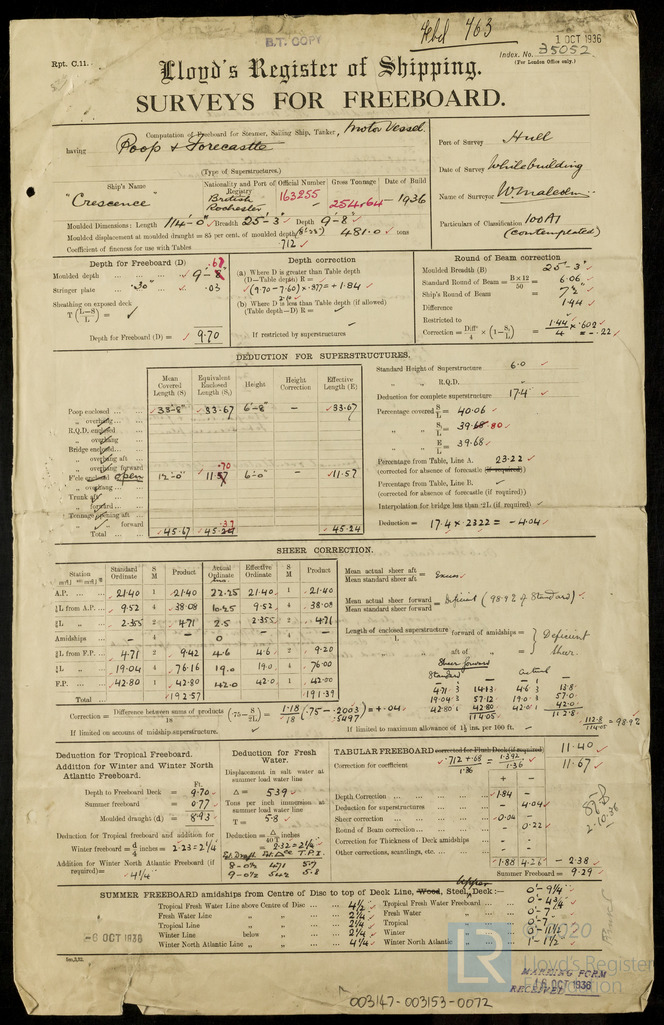 Febl 463
B.T. COPY
1 OCT 1936
Rpt. C.11.
Index. No. 35052
(For London Office only.)
Lloyd's Register of Shipping.
SURVEYS FOR FREEBOARD.
Computation of Freeboard for Steamer, Sailing Ship, Tanker, Motor Vessel
having Poop & Forecastle
(Type of Superstructures.)
Port of Survey Hull
Date of Survey Whilebuilding
Name of Surveyor W. Malcolm
Particulars of Classification 100 A1
(contemplated)
Ship's Name Nationality and Port of Registry Official Number Gross Tonnage Date of Build
"Crescence" British Rochester 163255 254.64 1936
Moulded Dimensions: Length 114'-0" Breadth 25'-3" Depth 9'-8"
Moulded displacement at moulded draught = 85 per cent. of moulded depth 481.0 tons
Coefficient of fineness for use with Tables .712
Depth for Freeboard (D)
Moulded depth 9'-8"
Stringer plate .30" .03
Sheathing on exposed deck
T (L-S/L) =
Depth for Freeboard (D) = 9.70
Depth correction
(a) Where D is greater than Table depth
(D—Table depth) R =
(9.70 - 7.60) × .877 = +1.84
(b) Where D is less than Table depth (if allowed)
(Table depth—D) R =
If restricted by superstructures
Round of Beam correction
Moulded Breadth (B) 25'-3"
Standard Round of Beam = B×12/50 = 6.06
Ship's Round of Beam = 7½
Difference 1.44
Restricted to
Correction = Diff/4 × (1-S₁/L) = 1.44/4 × .602 = -.22
DEDUCTION FOR SUPERSTRUCTURES.
Mean Covered Length (S) Equivalent Enclosed Length (S₁) Height Height Correction Effective Length (E)
Poop enclosed 33'-8" 33.67 6'-8" — 33.67
„ overhang
R.Q.D. enclosed
„ overhang
Bridge enclosed
„ overhang aft
„ overhang forward
F'cle enclosed open 12'-0" 11.57 .70 6'-0" 11.57
„ overhang
Trunk aft
„ forward
Tonnage opening aft
„ forward
Total 45.67 45.24 .37 45.24
Standard Height of Superstructure 6.0
„ „ R.Q.D.
Deduction for complete superstructure 17.4
Percentage covered S/L = 40.06
„ „ S₁/L = 39.68 .80
„ „ E/L = 39.68
Percentage from Table, Line A. 23.22
(corrected for absence of forecastle (if required))
Percentage from Table, Line B.
(corrected for absence of forecastle (if required))
Interpolation for bridge less than ·2L (if required)
Deduction = 17.4 × .2322 = -4.04
SHEER CORRECTION.
Station Standard Ordinate S M Product Actual Ordinate Effective Ordinate S M Product
A.P. 21.40 1 21.40 22.25 21.40 1 21.40
⅙L from A.P. 9.52 4 38.08 10.25 9.52 4 38.08
⅓L „ 2.355 2 4.71 2.5 2.355 2 4.71
Amidships - 4 - 0 - 4 -
⅓L from F.P. 4.71 2 9.42 4.6 4.6 2 9.20
⅙L „ 19.04 4 76.16 19.0 19.0 4 76.00
F.P. 42.80 1 42.80 42.0 42.0 1 42.00
Total 192.57 191.39
Mean actual sheer aft / Mean standard sheer aft = Excess
Mean actual sheer forward / Mean standard sheer forward = Deficient (98.9% of Standard)
Length of enclosed superstructure / L forward of amidships =
„ „ aft of „ =
} Deficient Sheer.
Sheer forward
Standard Actual
4.71 3 14.13 4.6 3 13.8
19.04 3 57.12 19.0 3 57.0
42.80 1 42.80 42.0 1 42.0
114.05 112.8
112.8/114.05 = 98.9%
Correction = Difference between sums of products / 18 (·75 - S/2L) = 1.18/18 (.75 - .2003) .5497 = +.04
If limited on account of midship superstructure.
If limited to maximum allowance of 1½ ins. per 100 ft.
Deduction for Tropical Freeboard.
Addition for Winter and Winter North Atlantic Freeboard.
Ft.
Depth to Freeboard Deck = 9.70
Summer freeboard = 0.77
Moulded draught (d) = 8.93
Deduction for Tropical freeboard and addition for
Winter freeboard = d/4 inches = 2.23 = 2¼"
Addition for Winter North Atlantic Freeboard (if required) =
4¼"
Deduction for Fresh Water.
Displacement in salt water at summer load water line
Δ = 539
Tons per inch immersion at summer load water line
T = 5.8
Deduction = Δ/40T inches
= 2.32 = 2¼"
8-0½ 471 5.7
9-0½ 542 5.8
TABULAR FREEBOARD corrected for Flush Deck (if required) 11.40
Correction for coefficient .712+.68/1.36 = 1.392/1.36 11.67
+ -
Depth Correction 1.84 -
Deduction for superstructures - 4.04
Sheer correction 0.04 -
Round of Beam correction - 0.22
Correction for Thickness of Deck amidships - -
Other corrections, scantlings, etc. - -
1.88 4.26 - 2.38
Summer Freeboard = 9.29
2.10.36
SUMMER FREEBOARD amidships from Centre of Disc to top of Deck Line, Wood, Steel, Upper Deck:— 0'-9¼"
Tropical Fresh Water Line above Centre of Disc 4½" Tropical Fresh Water Freeboard 0'-4¾"
Fresh Water Line „ „ 2¼" Fresh Water „ 0'-7"
Tropical Line „ „ 2¼" Tropical „ 0'-7"
Winter Line below „ 2¼" Winter „ 0'-11½"
Winter North Atlantic Line „ „ 4¼" Winter North Atlantic „ 1'-1½"
-6 OCT 1936
© 2020
LR
Lloyd's Register
Foundation
MARKING FORM
RECEIVED 16 OCT 1936
003147-003153-0072